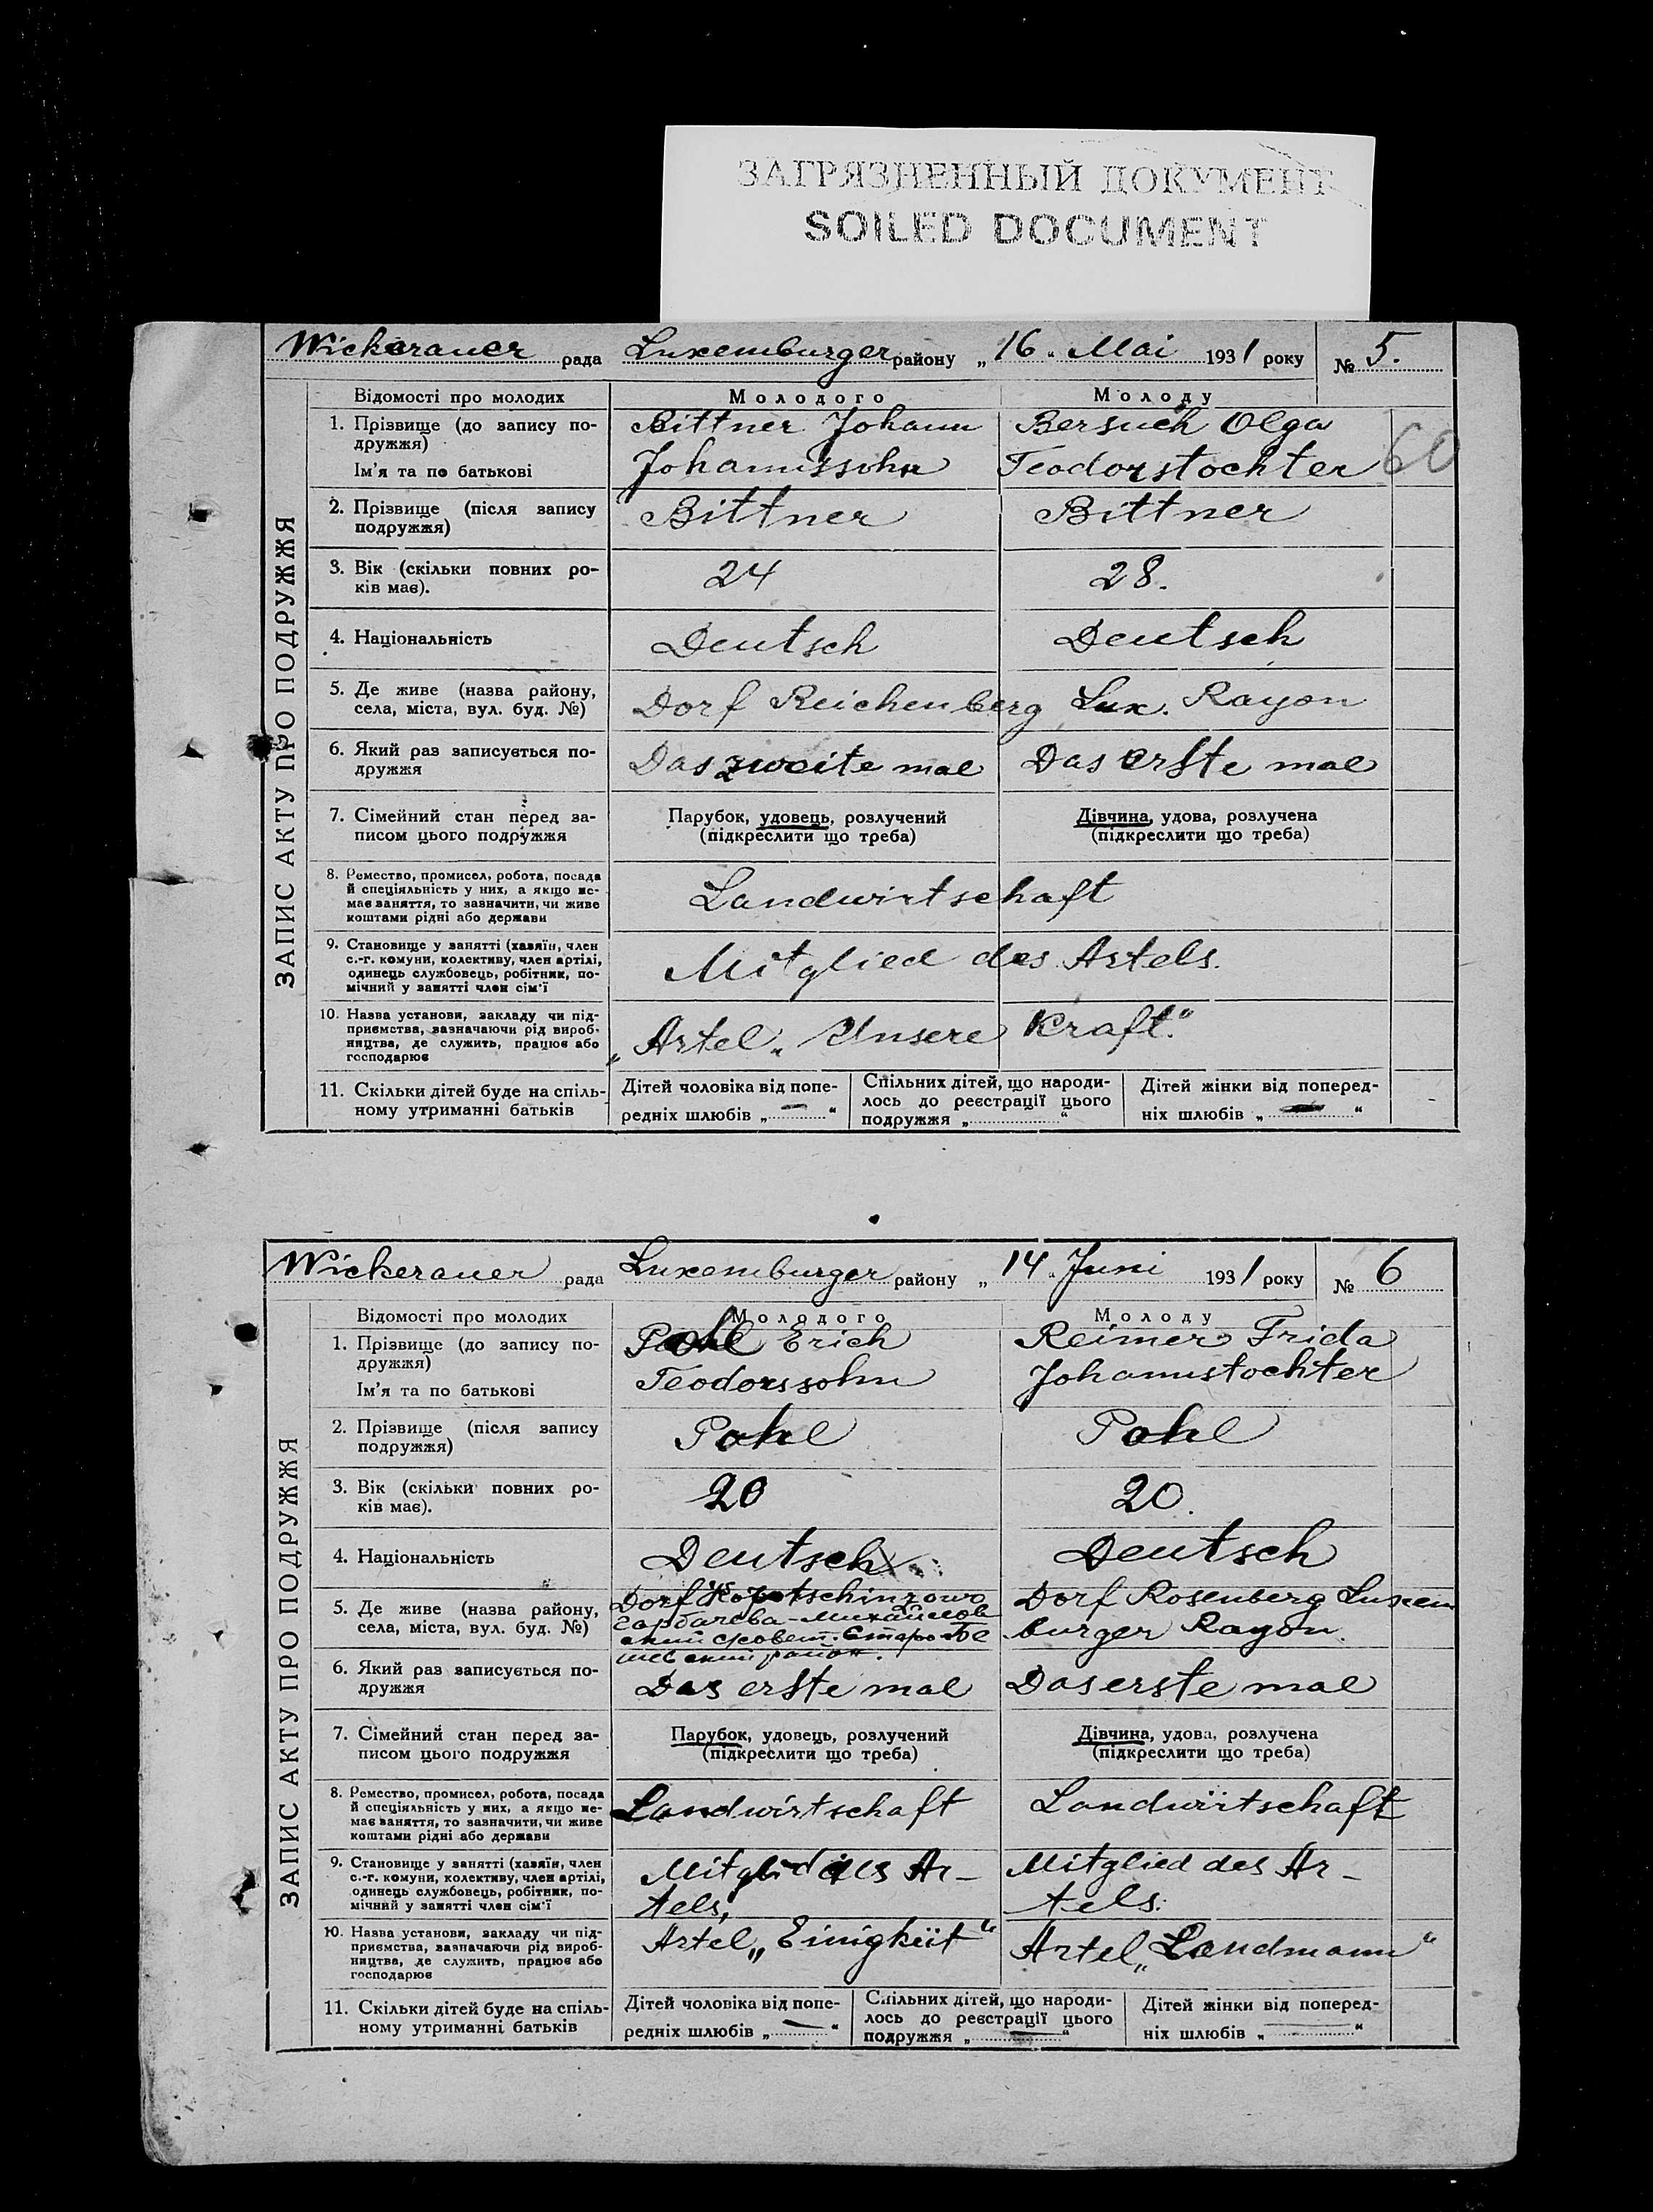 ЗАГРЯЗНЕННЫЙ ДОКУМЕНТ
SOILED DOCUMENT
Wickerauer рада Luxemburger району „16“ Mai 1931 року № 5.
ЗАПИС АКТУ ПРО ПОДРУЖЖЯ
Відомості про молодих Молодого Молоду
1. Прізвище (до запису по- Bittner Johann Bersuch Olga
дружжя)
Ім'я та по батькові Johannssohn Teodorstochter 60
2. Прізвище (після запису Bittner Bittner
подружжя)
3. Вік (скільки повних ро- 24 28.
ків має).
4. Національність Deutsch Deutsch
5. Де живе (назва району, Dorf Reichenberg Lux. Rayon
села, міста, вул. буд. №)
6. Який раз записується по- Das zweite mal Das erste mal
дружжя
7. Сімейний стан перед за- Парубок, удовець, розлучений Дівчина, удова, розлучена
писом цього подружжя (підкреслити що треба) (підкреслити що треба)
8. Ремество, промисел, робота, посада
й спеціяльність у них, а якщо не- Landwirtschaft
має заняття, то зазначити, чи живе
коштами рідні або держави
9. Становище у занятті (хазяїн, член
с.-г. комуни, колективу, член артілі, Mitglied des Artels.
одинець службовець, робітник, по-
мічний у занятті член сім'ї
10. Назва установи, закладу чи під-
приємства, зазначаючи рід вироб- „Artel „Unsere Kraft.“
ництва, де служить, працює або
господарює
11. Скільки дітей буде на спіль- Дітей чоловіка від попе- Спільних дітей, що народи- Дітей жінки від поперед-
ному утриманні батьків редніх шлюбів „—“ лось до реєстрації цього ніх шлюбів „—“
подружжя „ “
Wickerauer рада Luxemburger району „14“ Juni 1931 року № 6
ЗАПИС АКТУ ПРО ПОДРУЖЖЯ
Відомості про молодих Молодого Молоду
1. Прізвище (до запису по- Pohl Erich Reimer Frida
дружжя)
Ім'я та по батькові Teodorssohn Johannstochter
2. Прізвище (після запису Pohl Pohl
подружжя)
3. Вік (скільки повних ро- 20 20.
ків має).
4. Національність Deutsch Deutsch
5. Де живе (назва району, Dorf Dorf Rosenberg Luxem
села, міста, вул. буд. №) Горбачева-Михайлов burger Rayon.
ский совет. Старобе
шевский район.
6. Який раз записується по- Das erste mal Das erste mal
дружжя
7. Сімейний стан перед за- Парубок, удовець, розлучений Дівчина, удова, розлучена
писом цього подружжя (підкреслити що треба) (підкреслити що треба)
8. Ремество, промисел, робота, посада
й спеціяльність у них, а якщо не- Landwirtschaft Landwirtschaft
має заняття, то зазначити, чи живе
коштами рідні або держави
9. Становище у занятті (хазяїн, член Mitglied des Ar- Mitglied des Ar-
с.-г. комуни, колективу, член артілі,
одинець службовець, робітник, по- tels. tels.
мічний у занятті член сім'ї
10. Назва установи, закладу чи під- Artel „Einigkeit“ Artel „Landmann“
приємства, зазначаючи рід вироб-
ництва, де служить, працює або
господарює
11. Скільки дітей буде на спіль- Дітей чоловіка від попе- Спільних дітей, що народи- Дітей жінки від поперед-
ному утриманні батьків редніх шлюбів „—“ лось до реєстрації цього ніх шлюбів „—“
подружжя „—“